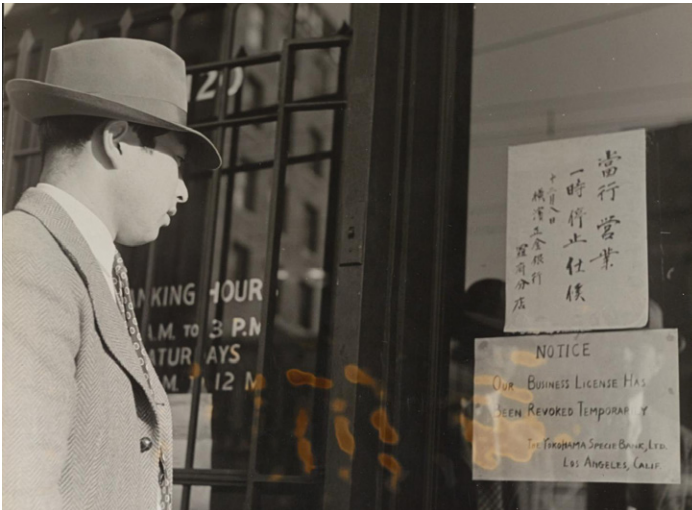 120
NKING HOUR
A.M. TO 3 P.M
ATURDAYS
M. T 12 M
當行営業
一時停止仕候
十二月八日
橫濱正金銀行
羅府分店
NOTICE
OUR BUSINESS LICENSE HAS
BEEN REVOKED TEMPORARILY
THE YOKOHAMA SPECIE BANK, LTD.
LOS ANGELES, CALIF.